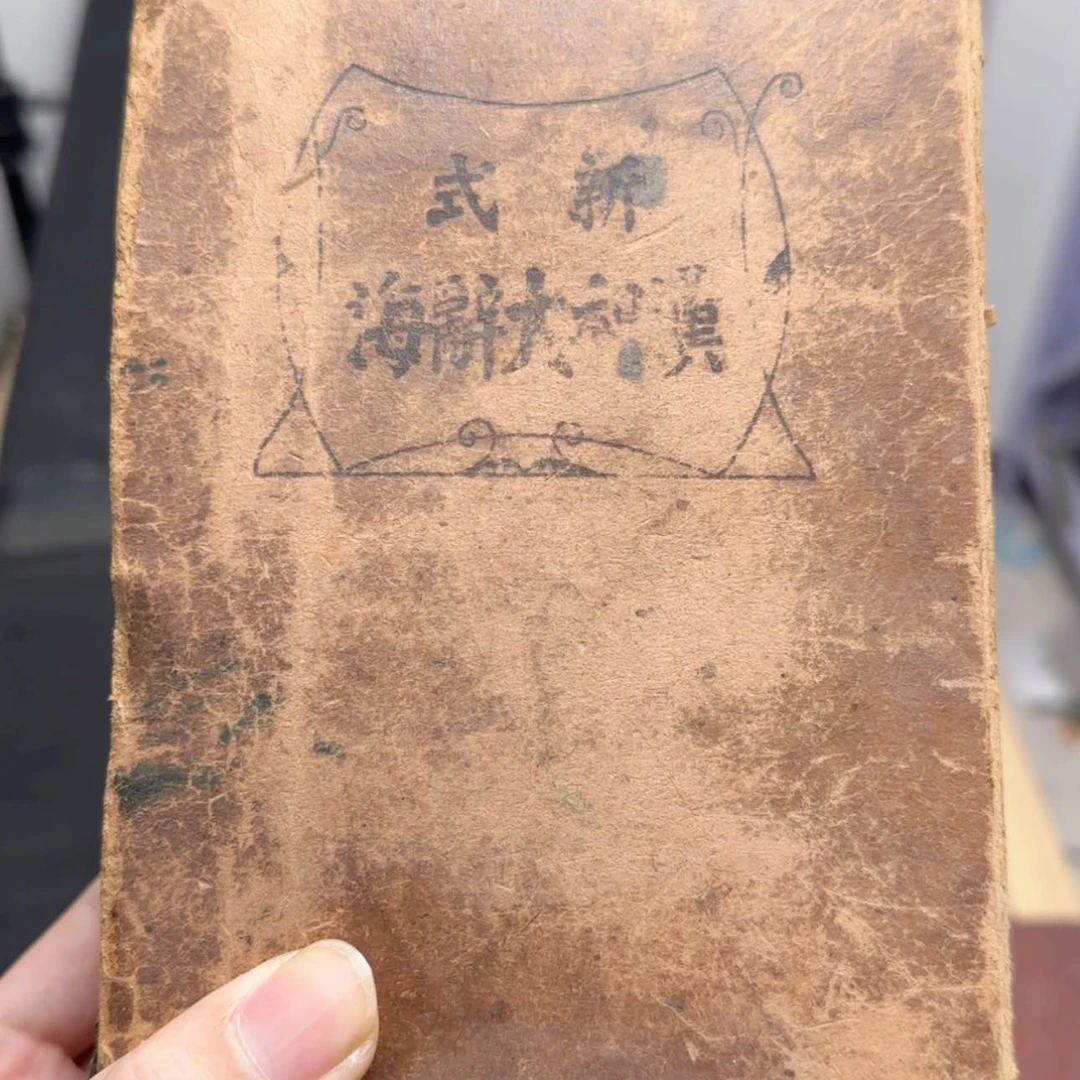 新式
漢和大辭海